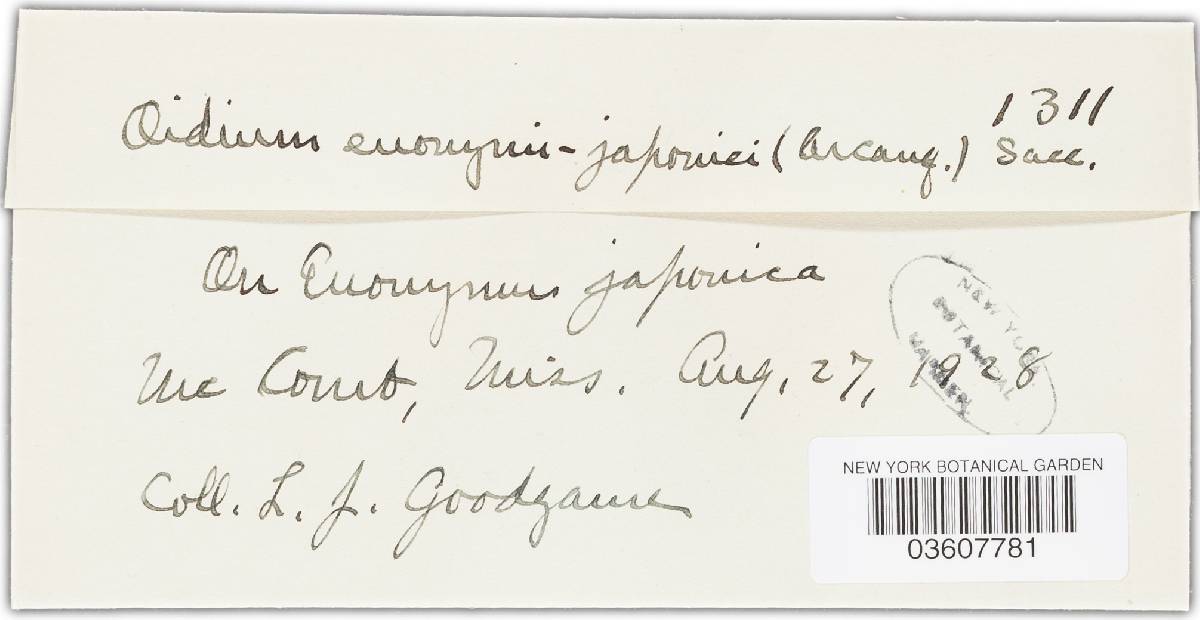 1311
Oidium euonymi-japonici (Arcang.) Sacc.
On Euonymus japonica
Mc Comb, Miss. Aug. 27, 1928
Coll. L. J. Goodgame
NEW YORK
BOTANICAL
GARDEN
NEW YORK BOTANICAL GARDEN
03607781